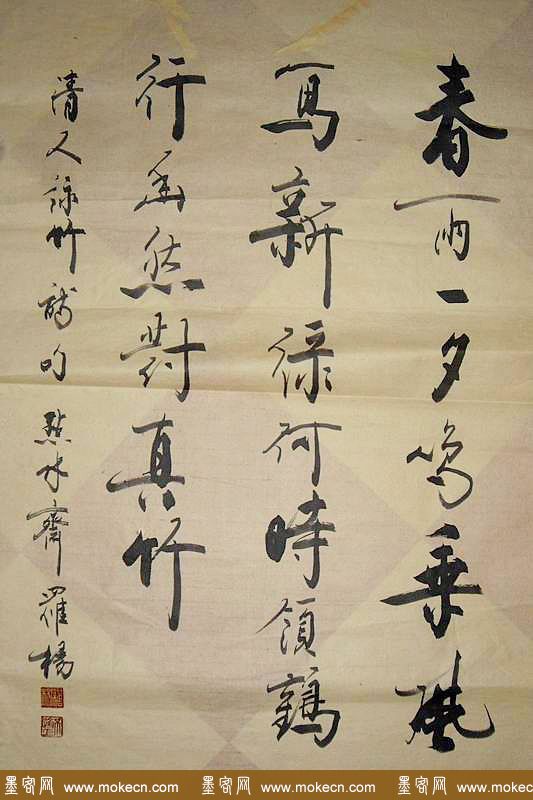 春雨一夕鳴乘興
寫新綠何時領鶴
行然對真竹
清人詠竹詩句 點水齋 羅楊
墨客网 www.mokecn.com 墨客网 www.mokecn.com 墨客网 www.mokecn.com